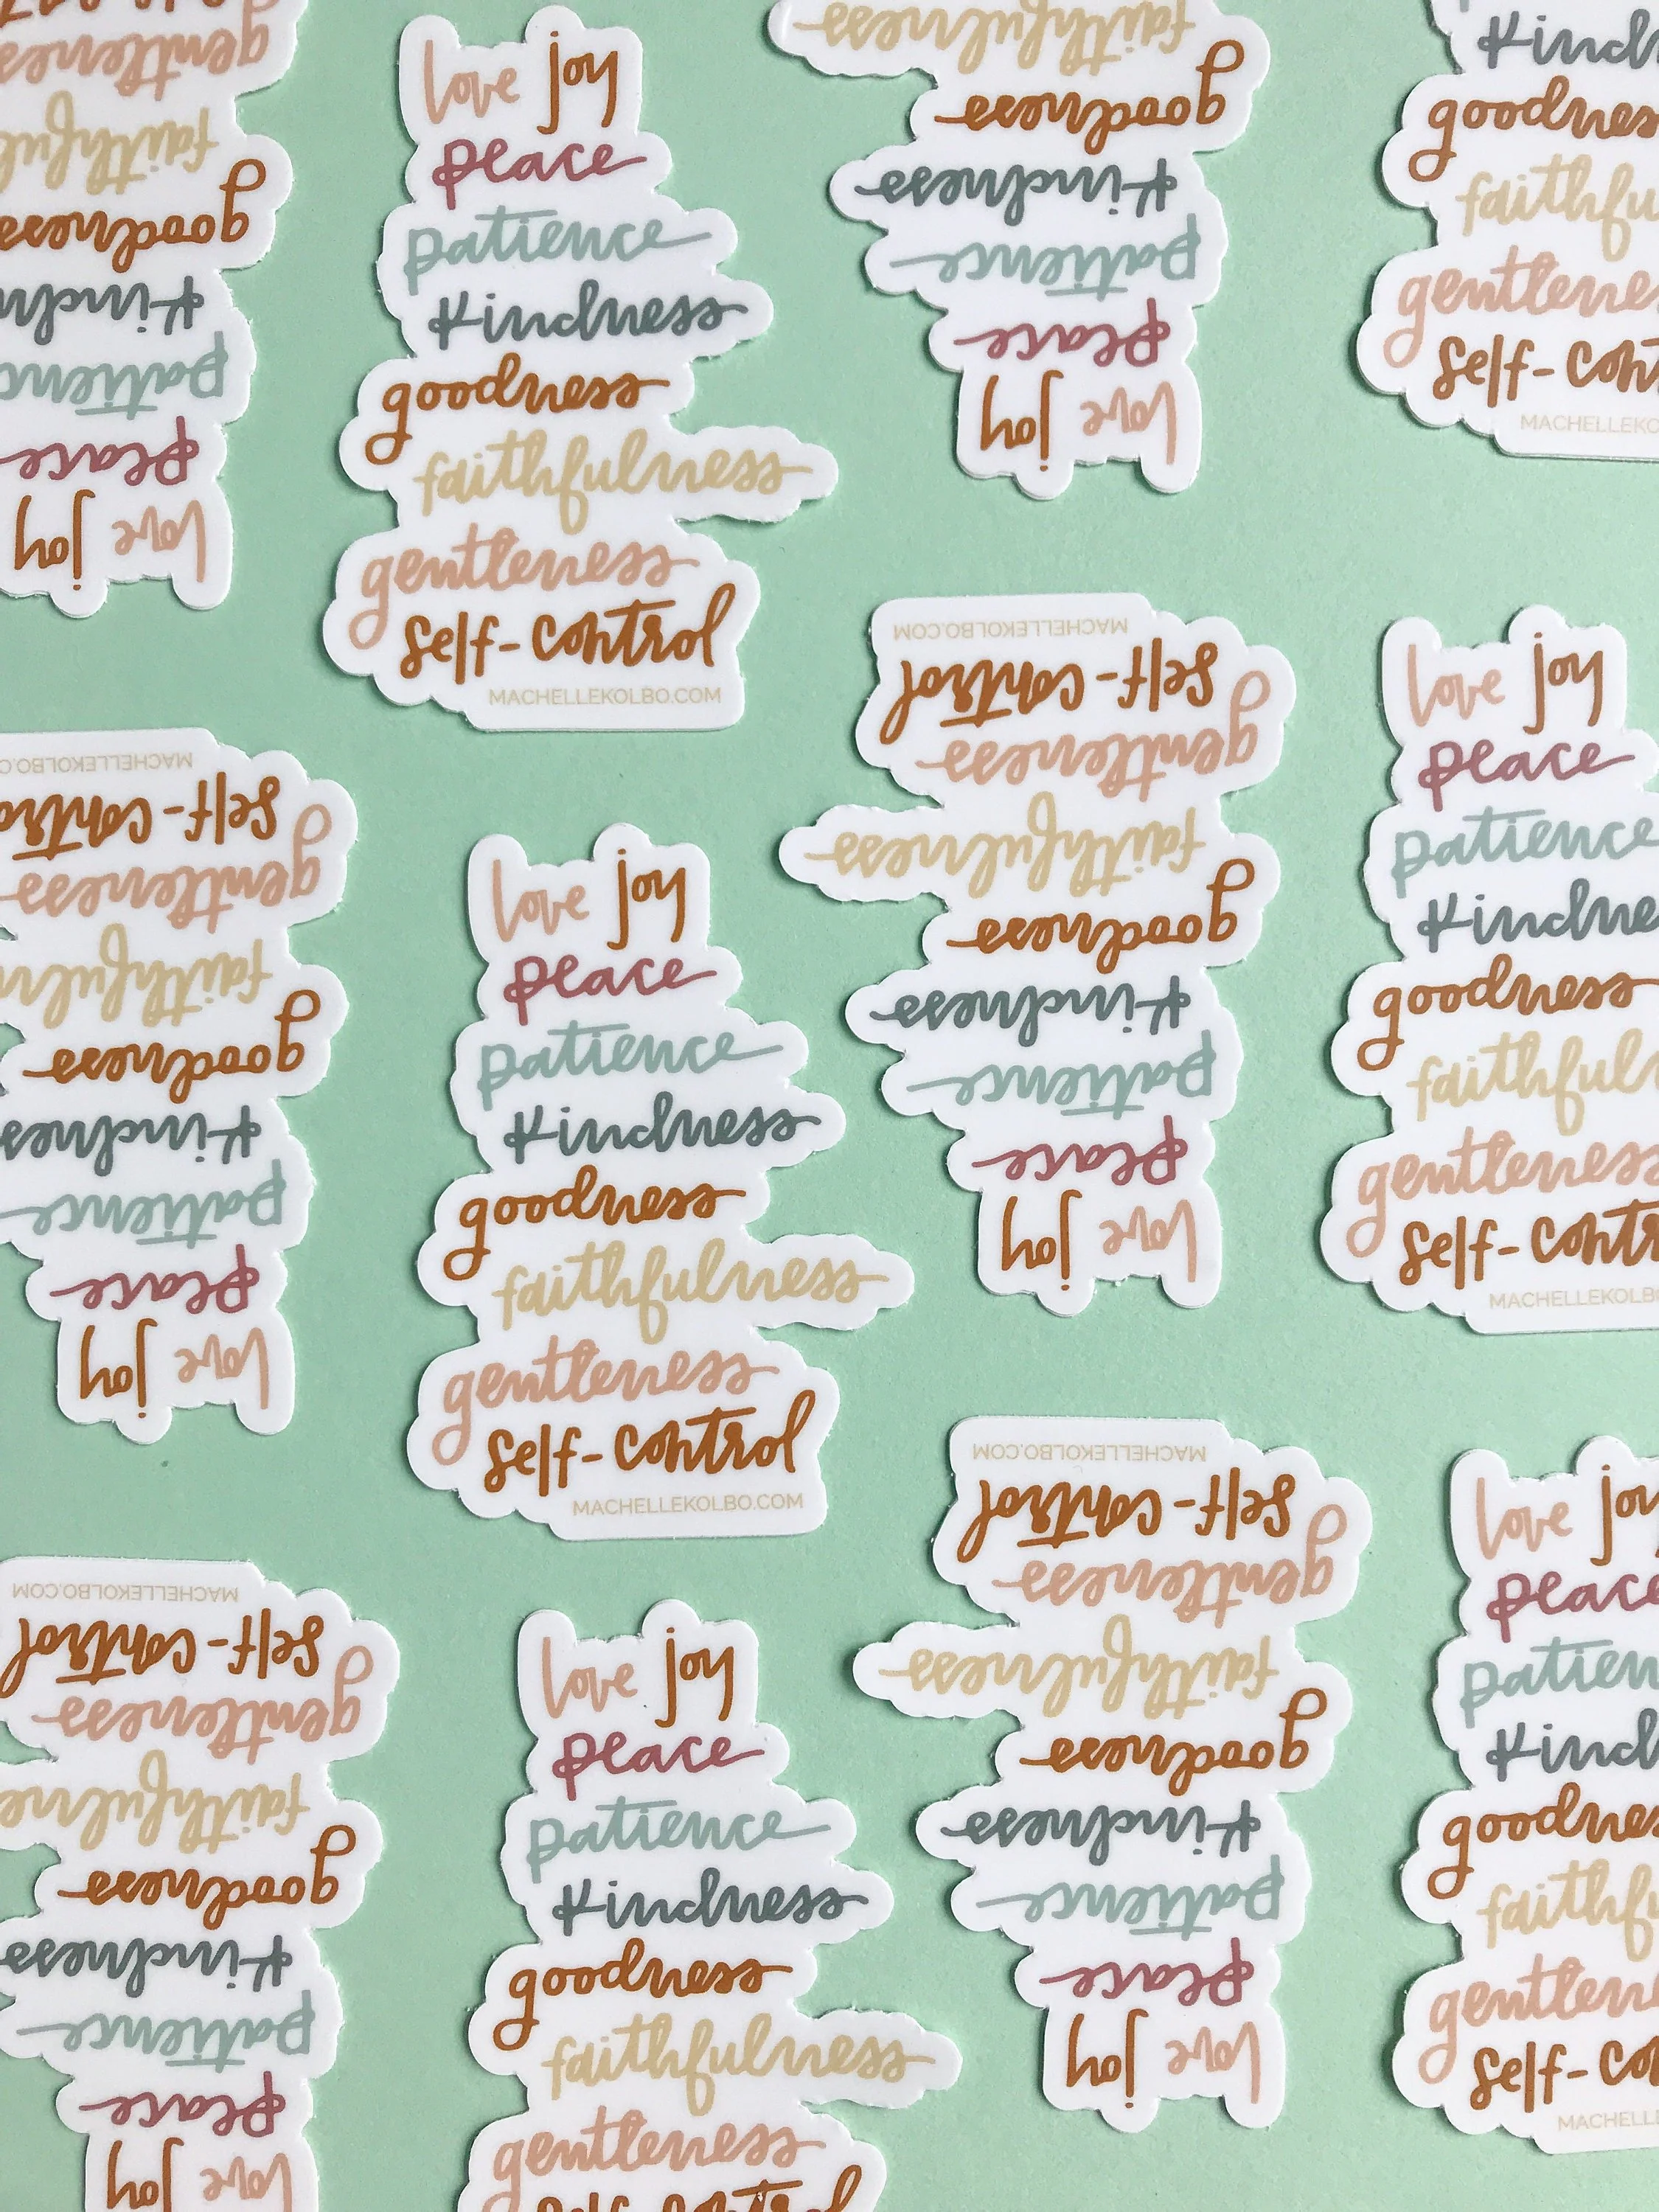 love joy
peace
patience
kindness
goodness
faithfulness
gentleness
self-control
MACHELLEKOLBO.COM
love joy
peace
patience
kindness
goodness
faithfulness
gentleness
self-control
MACHELLEKOLBO.COM
love joy
peace
patience
kindness
goodness
faithfulness
gentleness
self-control
love joy
peace
patience
kindness
goodness
faithfulness
love joy
peace
patience
kindness
goodness
faithfulness
gentleness
self-control
MACHELLEKOLBO.COM
love joy
peace
patience
kindness
goodness
faithfulness
gentleness
self-control
MACHELLEKOLBO.COM
love joy
peace
goodness
gentleness
love joy
peace
patience
kindness
goodness
gentleness
self-control
love joy
peace
patience
kindness
goodness
gentleness
self-control
MACHELLEKOLBO.COM
love joy
peace
patience
goodness
gentleness
love joy
peace